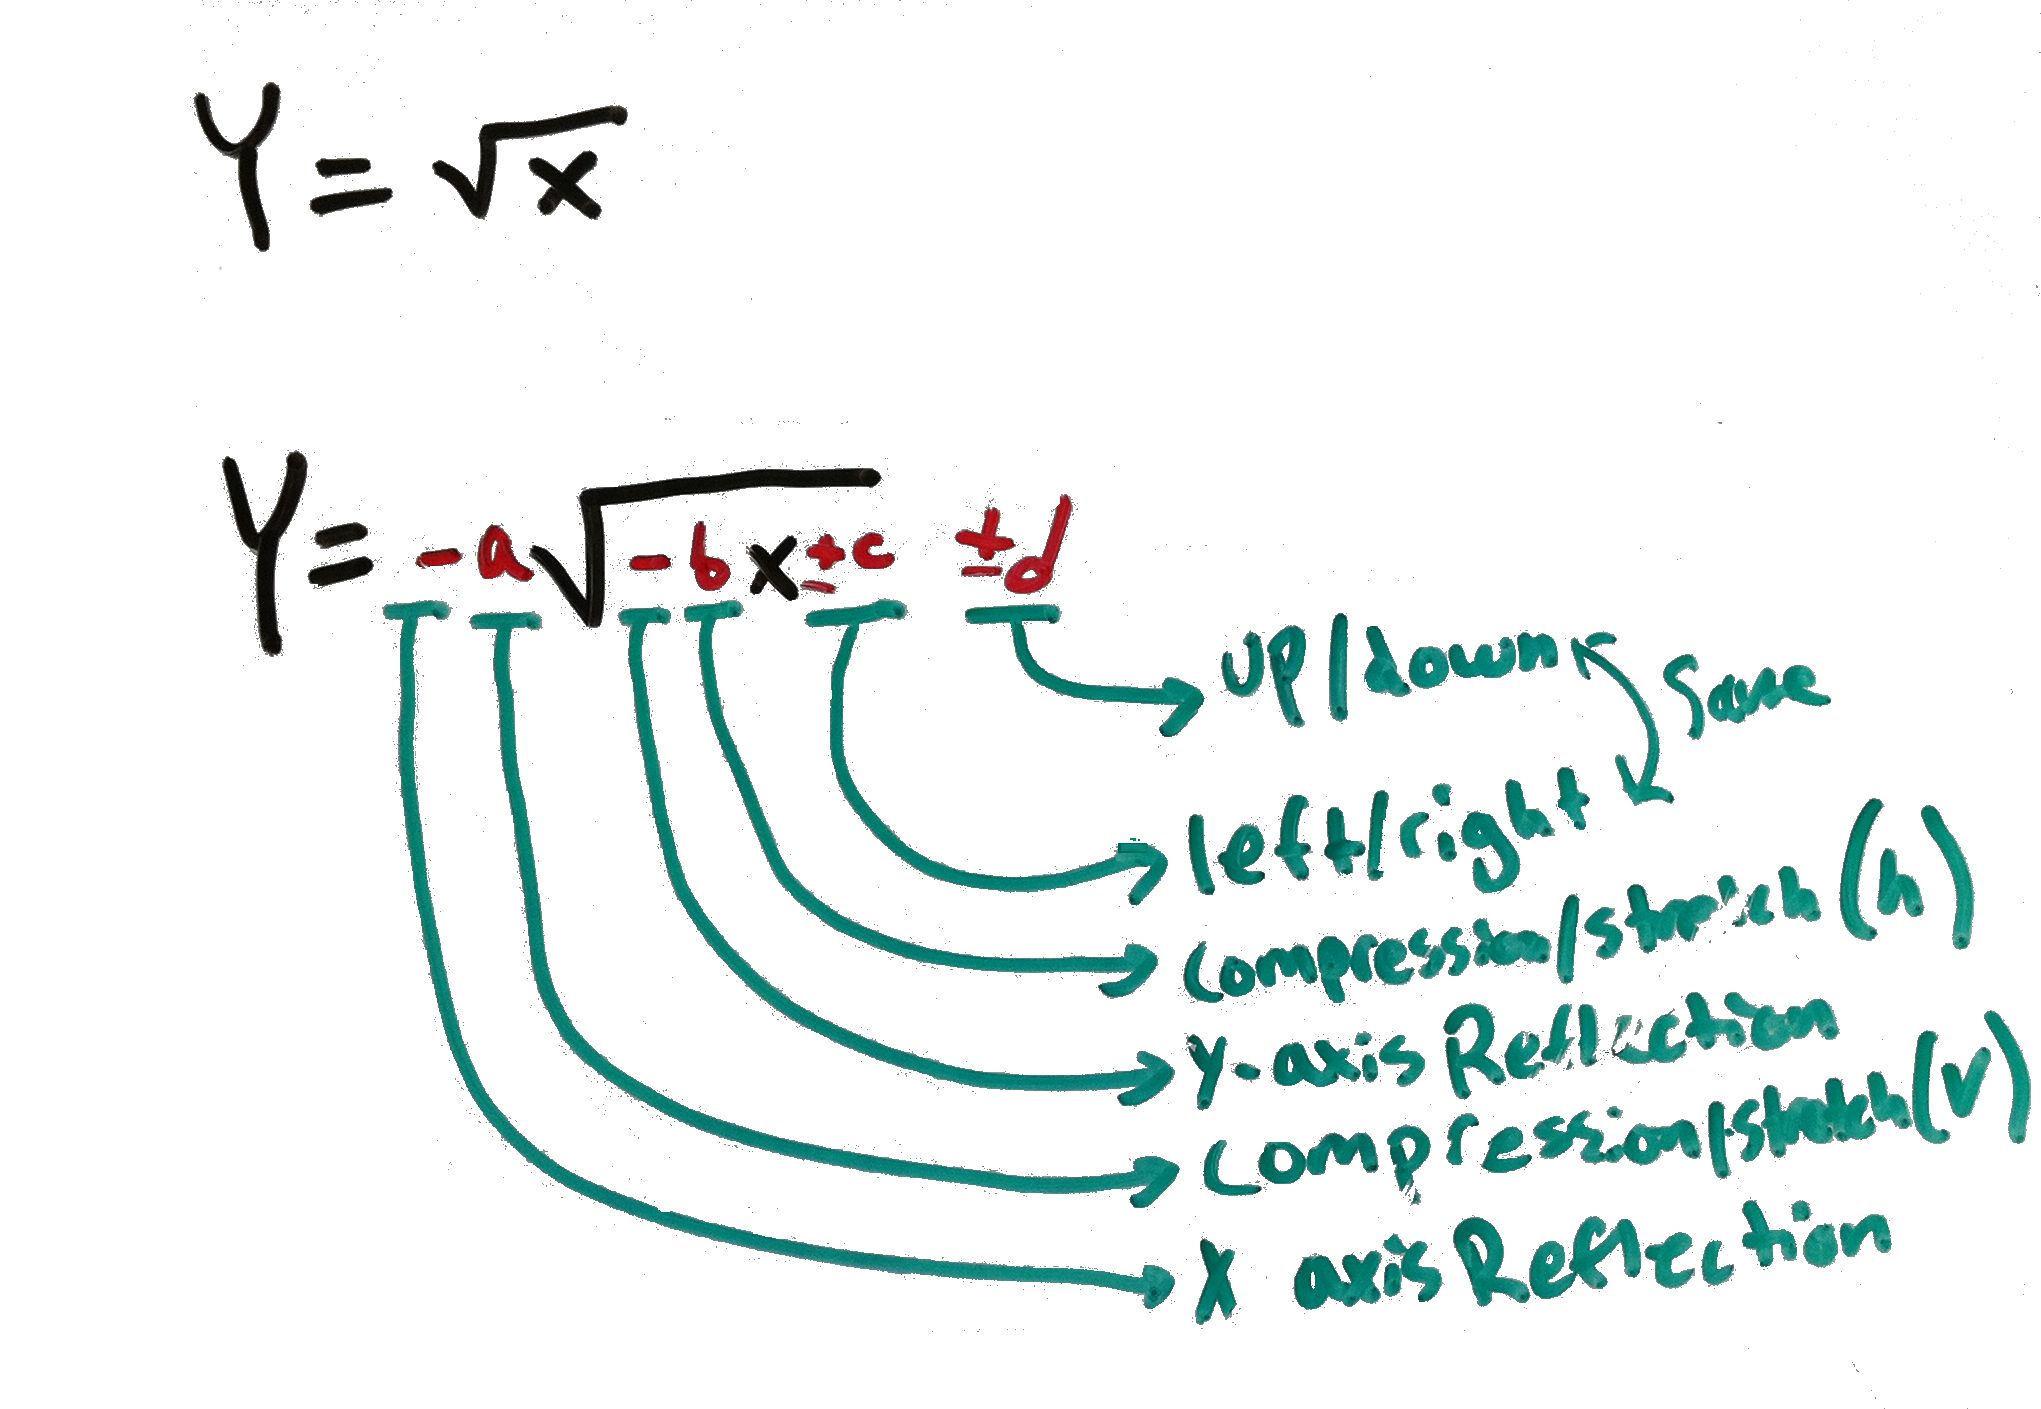 Y = √x
Y = -a√-bx±c ±d
UP/down
Same
left/right
compression/stretch (h)
Y-axis Reflection
compression/stretch (v)
X axis Reflection